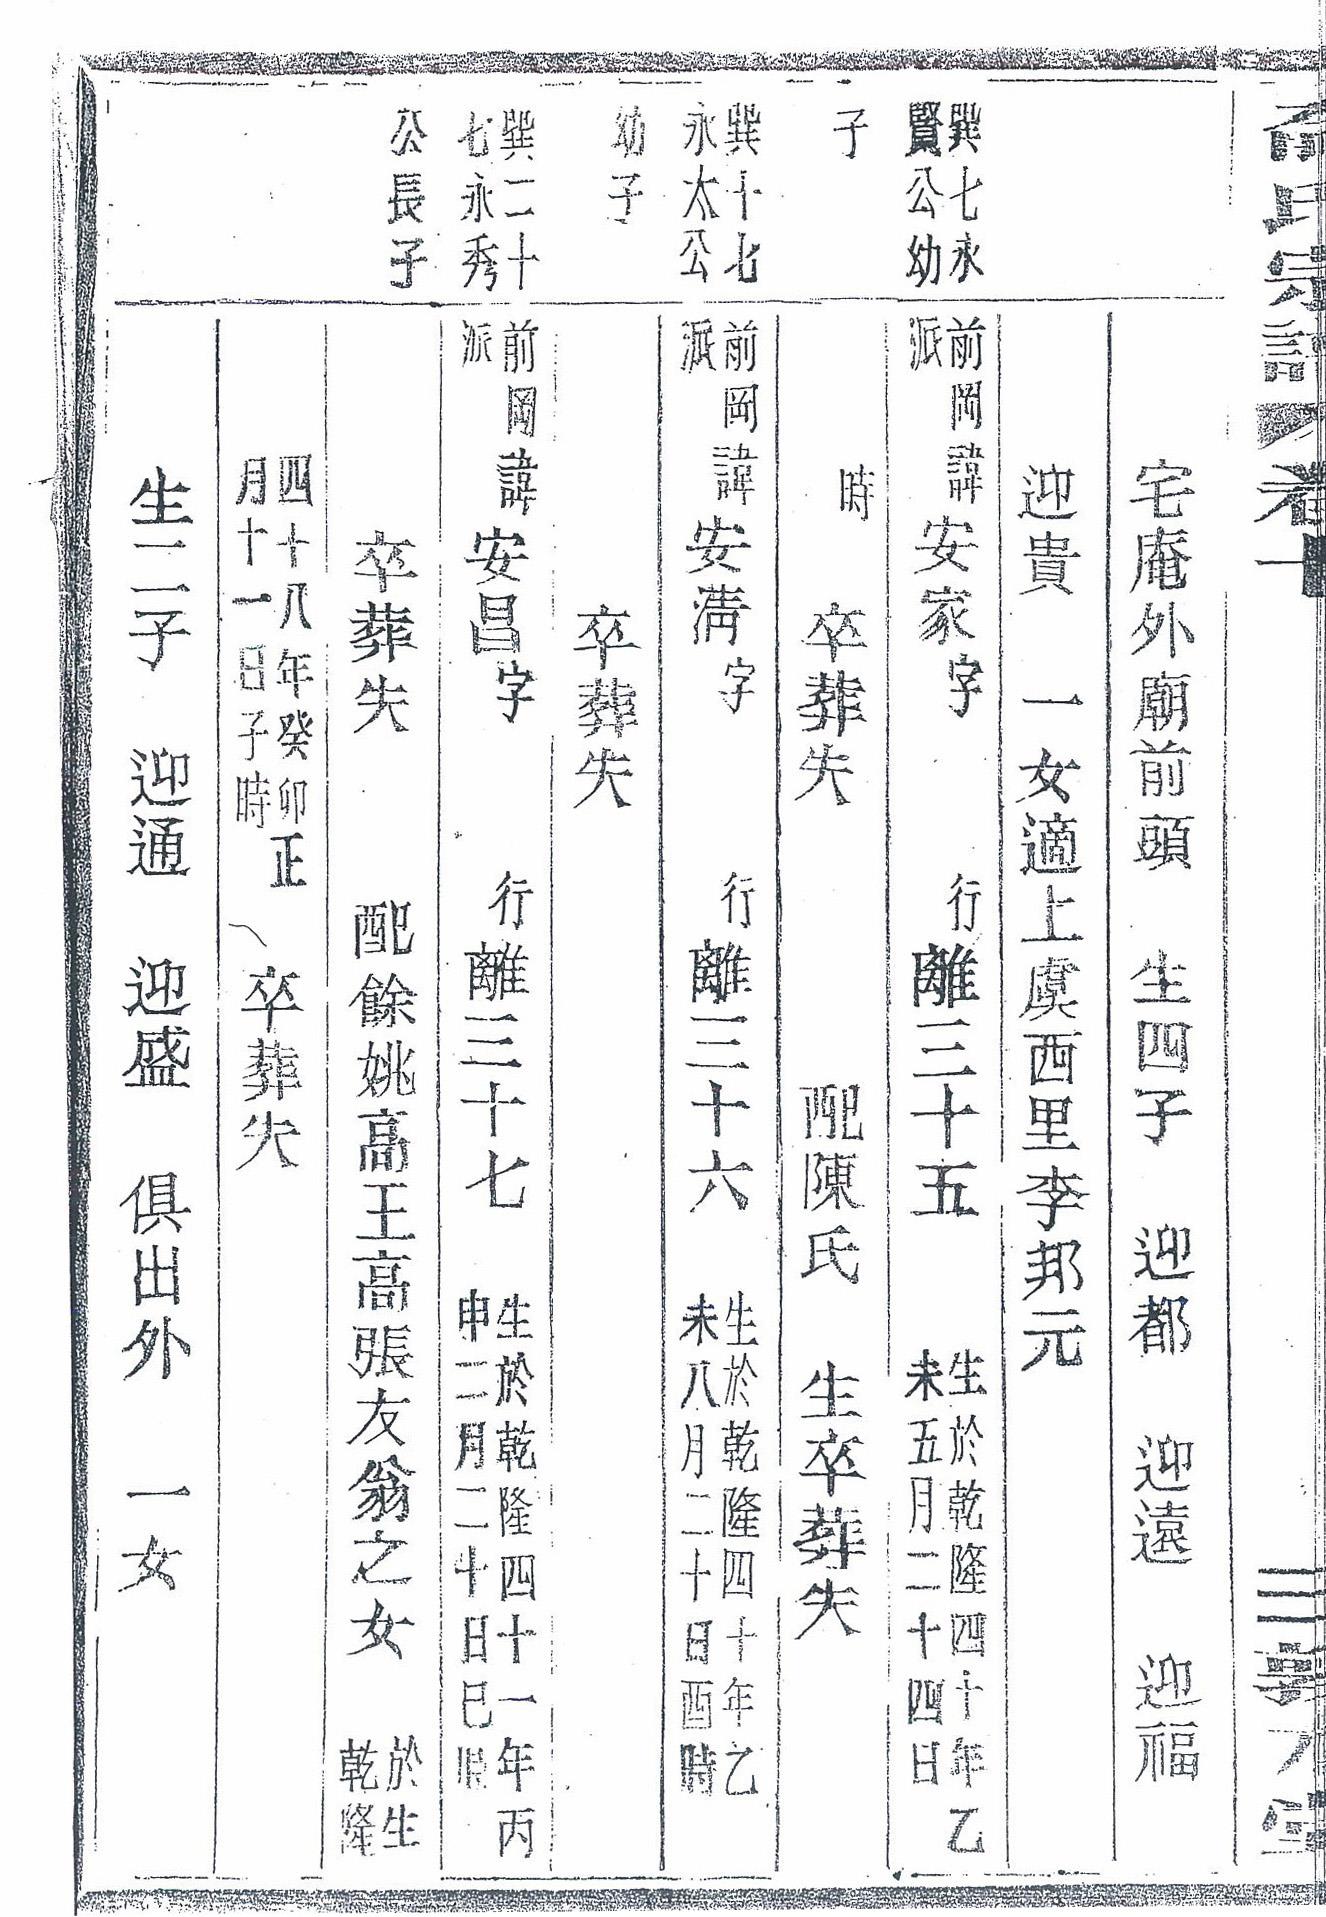 氏宗譜 卷十
宅庵外廟前頭 生四子 迎都 迎遠 迎福
迎貴 一女適上虞西里李邦元
巽七永賢公幼
前岡派諱安家字 行離三十五 生於乾隆四十年乙未五月二十四日
子
時 卒葬失 配陳氏 生卒葬失
巽十七永太公
前岡派諱安満字 行離三十六 生於乾隆四十年乙未八月二十日酉時
幼子
卒葬失
巽二十七永秀
前岡派諱安昌字 行離三十七 生於乾隆四十一年丙申二月二十日巳時
公長子
卒葬失 配餘姚高王高張友翁之女 生於乾隆
四十八年癸卯正月十一日子時 卒葬失
生二子 迎通 迎盛 俱出外 一女